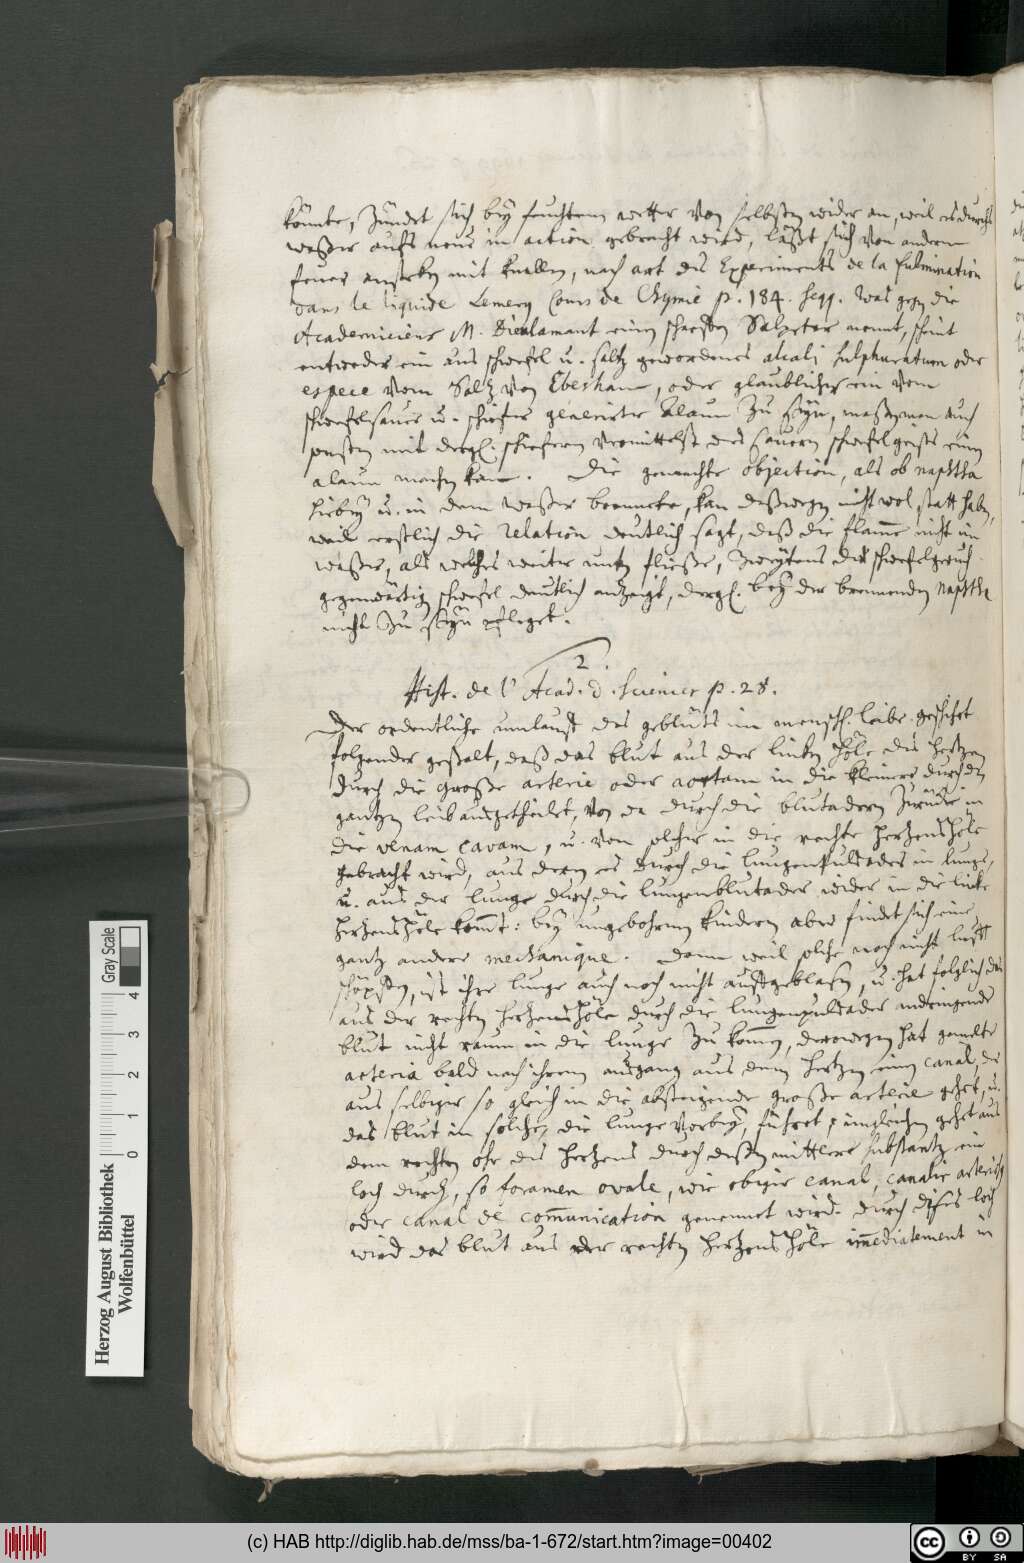 könte, zündet sich bey feuchtem wetter von selbsten wider an, weil es durchs
waßer aufs neue in action gebracht wird, läßt sich von andern
feuer anstecken mit knallen, nach art des Experiments de la fulmination
dans le liquide Lemery Cours de Chymie p. 184. seqq. Was gegen die
Academiciens M. Dieulamant einen scharffen Salpeter nennt, scheint
entweder ein aus schwefel u. saltz gewordenes alcali sulphuratum oder
espece vom Saltz von Ebesham, oder glaublicher ein vom
schwefelsauer u. schiefer generirter Alaun zu seyn, maßen man auch
sonsten mit dergl. schiefern vermittelst des sauern schwefelgeists einen
alaun machen kan. Die gemachte objection, als ob naphtha
hiebey u. in dem waßer brennete, kan deßwegen nicht wol statt haben,
weil erstlich die relation deutlich sagt, daß die flamme nicht im
waßer, als welches weiter unten fließe, zweytens der schwefelgeruch
gegenwärtigen schwefel deutlich anzeigt, dergl. bey der brennenden naphtha
nicht zu seyn pfleget.
2.
Hist. de l'Acad. d. sciences p. 28.
Der ordentliche umlauff des geblüts im menschl. leibe geschihet
folgender gestalt, daß das blut aus der linken Höle des Hertzen
durch die große arterie oder aortam in die kleinere durch den
gantzen leib ausgetheilet, von da durch die blutadern zurücke in
die venam cavam, u. von solcher in die rechte Hertzens Höle
gebracht wird, aus deren es durch die lungenpulsader in lunge,
u. aus der lunge durch die lungenblutader wider in die linke
Hertzens Höle kommt: bey ungebohrnen kindern aber findet sich eine
gantz andere mechanique. Dann weil solche noch nicht lufft
schöpffen, ist ihre lunge auch noch nicht auffgeblasen, u. hat folglich das
aus der rechten Hertzens Höle durch die lungenpulsader andringende
blut nicht raum in die lunge zu kommen, derowegen hat gemelte
arteria bald nach ihrem ausgang aus dem Hertzen einen canal, der
aus selbiger so gleich in die absteigende große arterie gehet, u.
das blut in solche, die lunge vorbey, führet; imgleichen gehet aus
dem rechten ohr des Hertzens durch deßen mittlere substantz ein
loch durch, so foramen ovale, wie obiger canal, canalis arterios9
oder canal de communication genennet wird. Durch dises loch
wird das blut aus der rechten Hertzens Höle immediatement in
Herzog August Bibliothek
Wolfenbüttel
0 1 2 3 4
Gray Scale
(c) HAB http://diglib.hab.de/mss/ba-1-672/start.htm?image=00402
cc BY SA